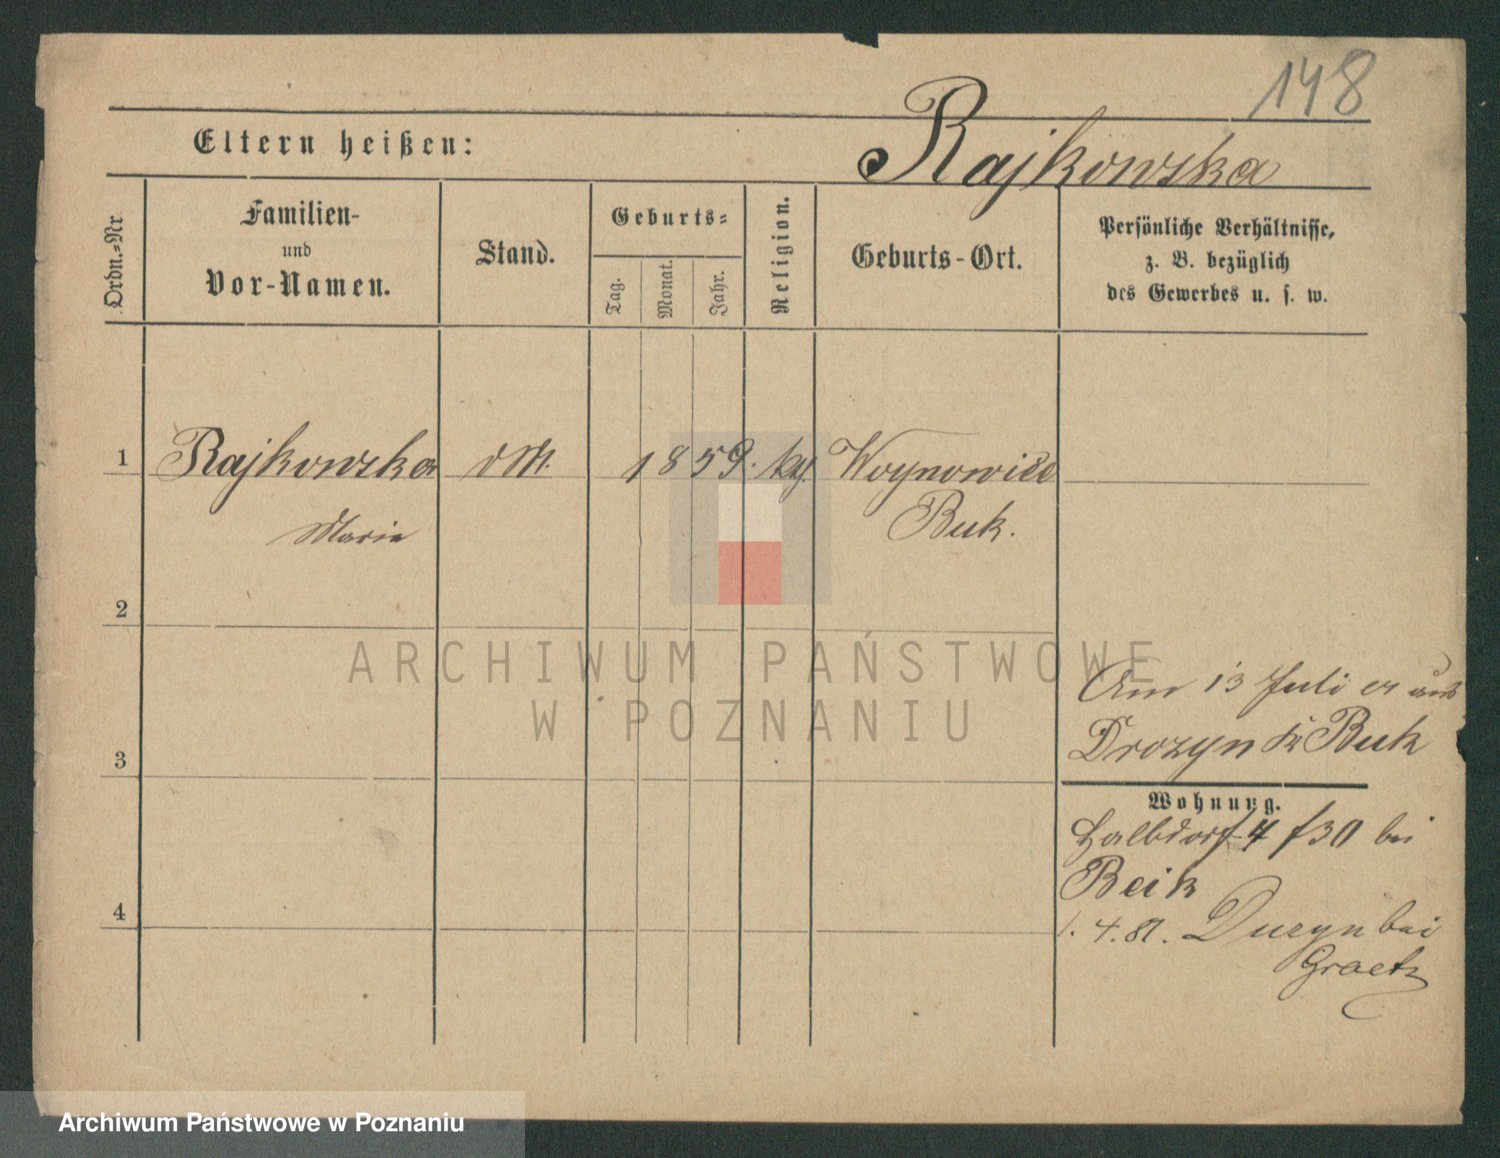 148
Rajkowska
Eltern heißen:
Ordn.=Nr
Familien-
und
Vor-Namen.
Stand.
Geburts=
Tag.
Monat.
Jahr.
Religion.
Geburts-Ort.
Persönliche Verhältnisse,
z. B. bezüglich
des Gewerbes u. s. w.
1
Rajkowska
1859. Woynowice
Marie
Buk.
2
ARCHIWUM PAŃSTWOWE
W POZNANIU
Am 13 Juli er aus
Drozyn Kr Buk
3
Wohnung.
Halbdorf 4 f 30 bei
Beik
4
1. 4. 81. Duzyn bei
Graetz
Archiwum Państwowe w Poznaniu